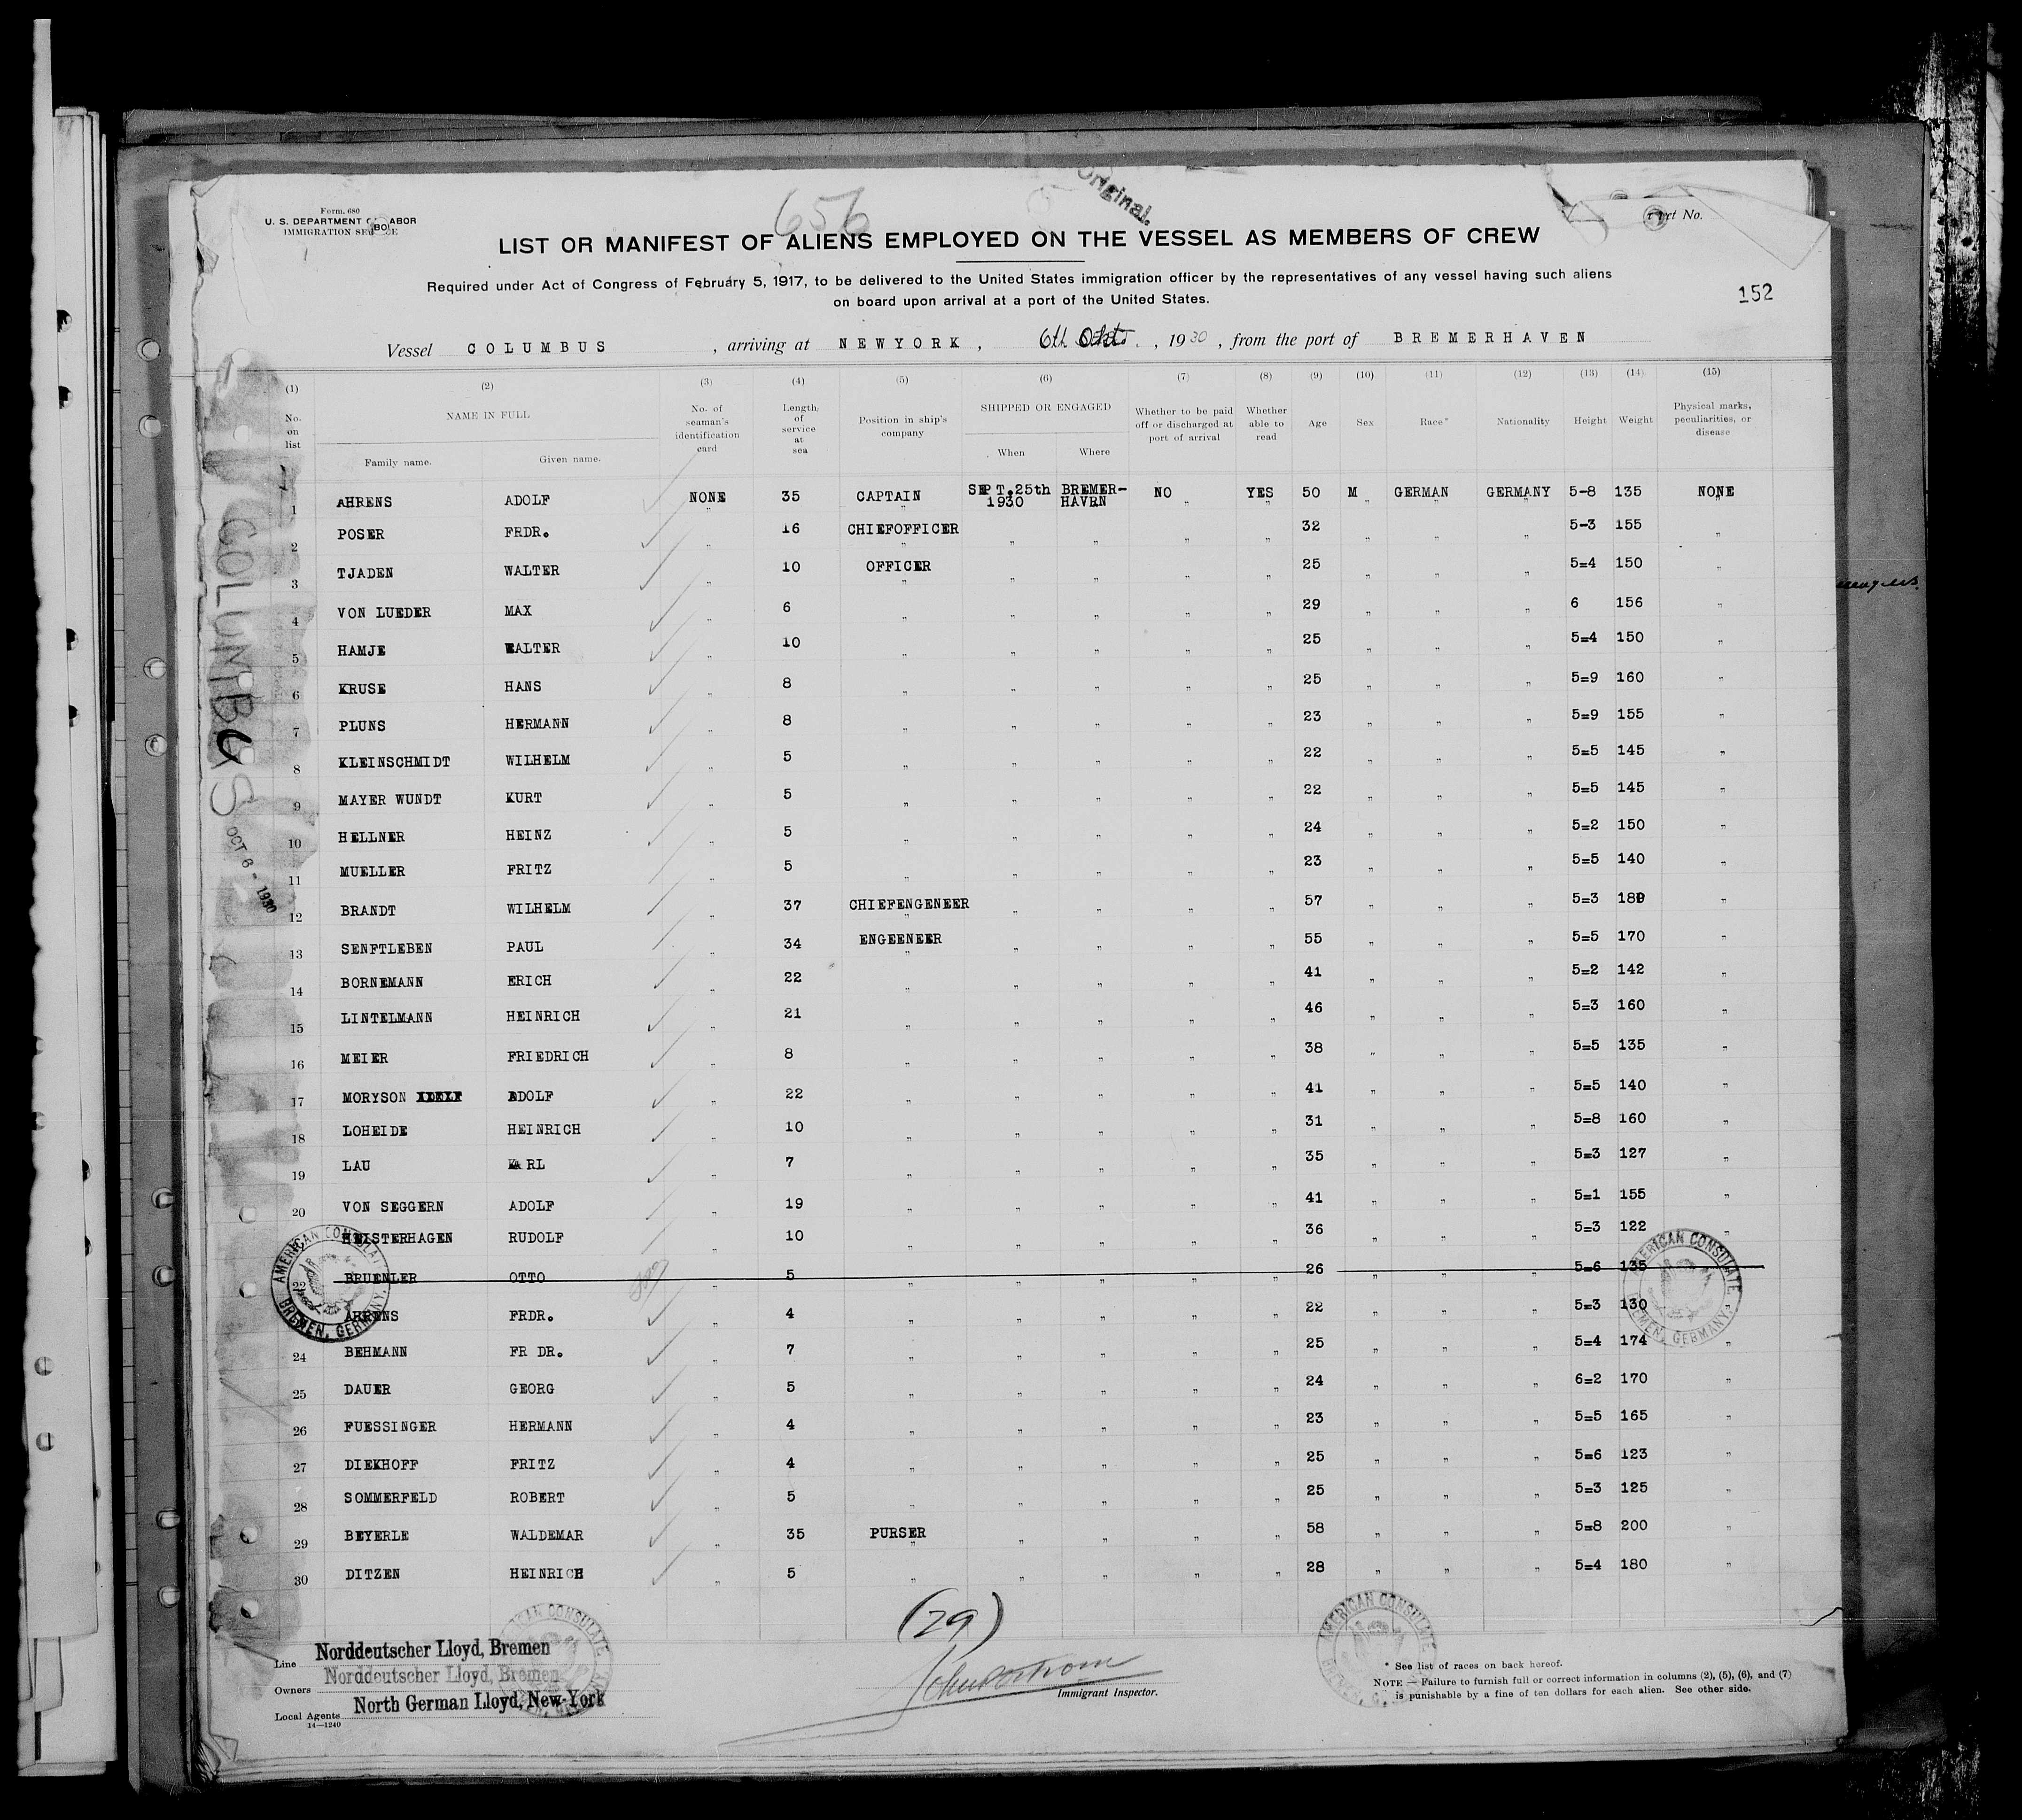 Form. 680
U. S. DEPARTMENT OF LABOR
IMMIGRATION SERVICE
656
Original.
LIST OR MANIFEST OF ALIENS EMPLOYED ON THE VESSEL AS MEMBERS OF CREW
Required under Act of Congress of February 5, 1917, to be delivered to the United States immigration officer by the representatives of any vessel having such aliens
on board upon arrival at a port of the United States.
152
Vessel COLUMBUS, arriving at NEWYORK, 6th Okt., 1930, from the port of BREMERHAVEN
(1) (2) (3) (4) (5) (6) (7) (8) (9) (10) (11) (12) (13) (14) (15)
No. on list NAME IN FULL Family name. Given name. No. of seaman's identification card Length of service at sea Position in ship's company SHIPPED OR ENGAGED When Where Whether to be paid off or discharged at port of arrival Whether able to read Age Sex Race* Nationality Height Weight Physical marks, peculiarities, or disease
1 AHRENS ADOLF NONE 35 CAPTAIN SEPT.25th 1930 BREMER-HAVEN NO YES 50 M GERMAN GERMANY 5-8 135 NONE
2 POSER FRDR. " 16 CHIEFOFFICER " " " " 32 " " " 5-3 155 "
3 TJADEN WALTER " 10 OFFICER " " " " 25 " " " 5=4 150 "
4 VON LUEDER MAX " 6 " " " " " 29 " " " 6 156 "
5 HAMJE WALTER " 10 " " " " " 25 " " " 5=4 150 "
6 KRUSE HANS " 8 " " " " " 25 " " " 5=9 160 "
7 PLUNS HERMANN " 8 " " " " " 23 " " " 5=9 155 "
8 KLEINSCHMIDT WILHELM " 5 " " " " " 22 " " " 5=5 145 "
9 MAYER WUNDT KURT " 5 " " " " " 22 " " " 5=5 145 "
10 HELLNER HEINZ " 5 " " " " " 24 " " " 5=2 150 "
11 MUELLER FRITZ " 5 " " " " " 23 " " " 5=5 140 "
12 BRANDT WILHELM " 37 CHIEFENGENEER " " " " 57 " " " 5=3 180 "
13 SENFTLEBEN PAUL " 34 ENGEENEER " " " " 55 " " " 5=5 170 "
14 BORNEMANN ERICH " 22 " " " " " 41 " " " 5=2 142 "
15 LINTELMANN HEINRICH " 21 " " " " " 46 " " " 5=3 160 "
16 MEIER FRIEDRICH " 8 " " " " " 38 " " " 5=5 135 "
17 MORYSON ADOLF " 22 " " " " " 41 " " " 5=5 140 "
18 LOHEIDE HEINRICH " 10 " " " " " 31 " " " 5=8 160 "
19 LAU KARL " 7 " " " " " 35 " " " 5=3 127 "
20 VON SEGGERN ADOLF " 19 " " " " " 41 " " " 5=1 155 "
HEISTERHAGEN RUDOLF " 10 " " " " " 36 " " " 5=3 122 "
22 BRUENLER OTTO " 5 " " " " " 26 " " " 5=6 135
AHRENS FRDR. " 4 " " " " " 22 " " " 5=3 130 "
24 BEHMANN FR DR. " 7 " " " " " 25 " " " 5=4 174 "
25 DAUER GEORG " 5 " " " " " 24 " " " 6=2 170 "
26 FUESSINGER HERMANN " 4 " " " " " 23 " " " 5=5 165 "
27 DIEKHOFF FRITZ " 4 " " " " " 25 " " " 5=6 123 "
28 SOMMERFELD ROBERT " 5 " " " " " 25 " " " 5=3 125 "
29 BEYERLE WALDEMAR " 35 PURSER " " " " 58 " " " 5=8 200 "
30 DITZEN HEINRICH " 5 " " " " " 28 " " " 5=4 180 "
COLUMBUS
OCT 6 - 1930
AMERICAN CONSULATE BREMEN, GERMANY.
AMERICAN CONSULATE BREMEN, GERMANY.
(29)
Line Norddeutscher Lloyd, Bremen
Owners Norddeutscher Lloyd, Bremen
Local Agents North German Lloyd, New-York
14—1240
AMERICAN CONSULATE
AMERICAN CONSULATE
Immigrant Inspector.
* See list of races on back hereof.
NOTE.—Failure to furnish full or correct information in columns (2), (5), (6), and (7)
is punishable by a fine of ten dollars for each alien. See other side.